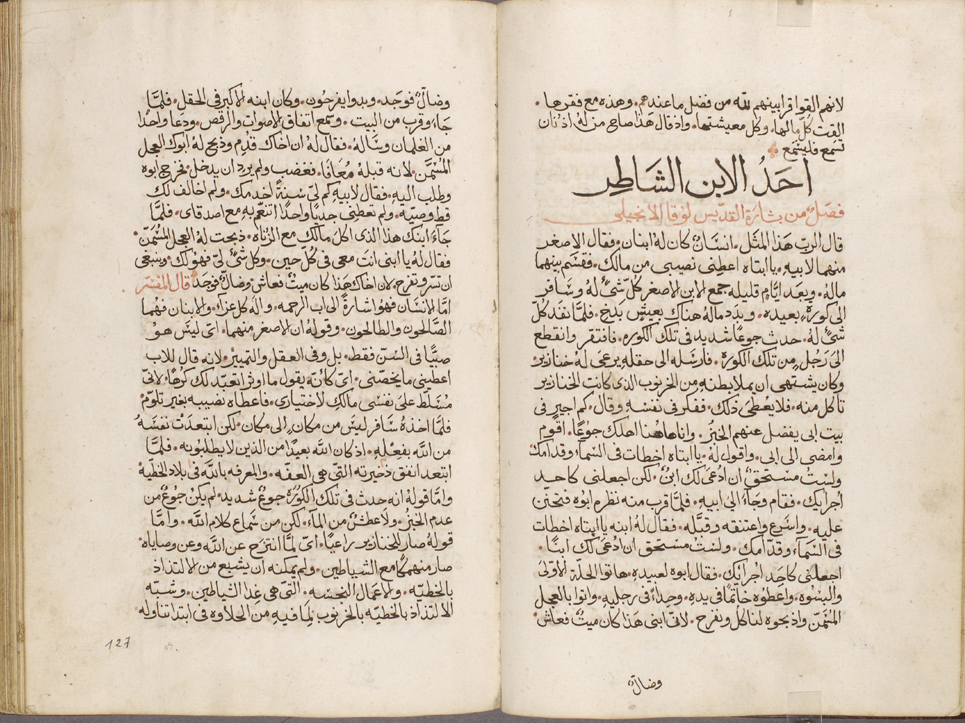 لانهم القوا قرابينهم لله من فضل ما عندهم • وهذه مع فقرها •
القت كل مالها • وكل معيشتها • واذ قال هذا صاح من له اذنان
تسمع فليسمع
احد الابن الشاطر
فصل من بشارة القديس لوقا الانجيلي
قال الرب هذا المثل • انسان كان له ابنان • فقال الاصغر
منهما لابيه • يا ابتاه اعطني نصيبي من مالك • فقسم بينهما
ماله • وبعد ايام قليله جمع الابن الاصغر كل شي له وسافر
الى كورة بعيده • وبدد ماله هناك بعيش بذخ • فلما نفد كل
شي له • حدث جوعا شديد في تلك الكوره • فافتقر وانقطع
الى رجل من تلك الكورة • فارسله الى حقله يرعى له خنازير
وكان يشتهي ان يملا بطنه من الخرنوب الذي كانت الخنازير
تاكل منه • فلا يعطى ذلك • ففكر في نفسه وقال • كم اجير في
بيت ابي يفضل عنهم الخبز • وانا هاهنا اهلك جوعا • اقوم
وامضي الى ابي • واقول له • يا ابتاه اخطات في السما وقدامك
ولست مستحق ان ادعى لك ابن • لكن اجعلني كاحد
اجرايك • فقام وجاء الى ابيه • فلما قرب منه نظره ابوه فتحنن
عليه • واسرع واعتنقه وقبله • فقال له ابنه يا ابتاه اخطات
في السماء وقدامك • ولست مستحق ان ادعى لك ابنا •
اجعلني كاحد اجرايك • فقال ابوه لعبيده • هاتوا الحلة الاولى
والبسوه • واعطوه خاتما في يديه • وحذاء في رجليه • واتوا بالعجل
المثمن واذبحوه لناكل ونفرح • لان ابني هذا كان ميت فعاش •
وضال
وضال فوجد • وبدوا يفرحون • وكان ابنه الاكبر في الحقل • فلما
جاء وقرب من البيت • وسمع اتفاق الاصوات والرقص • ودعا واحدا
من الغلمان وساله • فقال له ان اخاك قدم وذبح له ابوك العجل
المثمن • لانه قبله معافا • فغضب ولم يرد ان يدخل • فخرج ابوه
وطلب اليه • فقال لابيه كم لي سنة اخدمك • ولم اخالف لك
قط وصيه • ولم تعطني جديا واحدا اتنعم به مع اصدقاي • فلما
جاء ابنك هذا الذي اكل مالك مع الزناه • ذبحت له العجل المثمن •
فقال له يا ابني انت معي في كل حين • وكل شي لي فهو لك • وينبغي
ان نسر ونفرح • لان اخاك هذا كان ميت فعاش وضال فوجد قال المفسر
اما الانسان فهو اشارة الى اب الرحمه • واله كل عزاء • والابنان فهما
الصالحون والطالحون • وقوله ان الاصغر منهما • اي ليس هو
صبيا في السن فقط • بل وفي العقل والتمييز • لانه قال للاب
اعطيني ما يخصني • اي كانه يقول ما اوثر اتعبد لك كرها • لاني
مسلط على نفسي مالك لاختياري • فاعطاه نصيبه بغير تلوم •
فلما اخذه سافر ليس من مكان الى مكان • لكن ابتعدت نفسه
من الله بفعله • اذ كان الله بعيدا من الذين لا يطلبونه • فلما
ابتعد انفق ذخيرته التي هي العفه • والمعرفه بالله في بلاد الخطية
واما قوله انه حدث في تلك الكوره جوع شديد • لم يكن جوع من
عدم الخبز • ولا عطش من الماء • لكن من سماع كلام الله • واما
قوله صار للخنازير راعيا • اي لما انتزح عن الله وعن وصاياه •
صار منهمكا مع الشياطين • ولم يمكنه ان يشبع من الالتذاذ
بالخطيه • والاعمال النجسه • التي هي غذا الشياطين • وشبه
الالتذاذ بالخطيه بالخرنوب لما فيه من الحلاوه في ابتدا تناوله
127